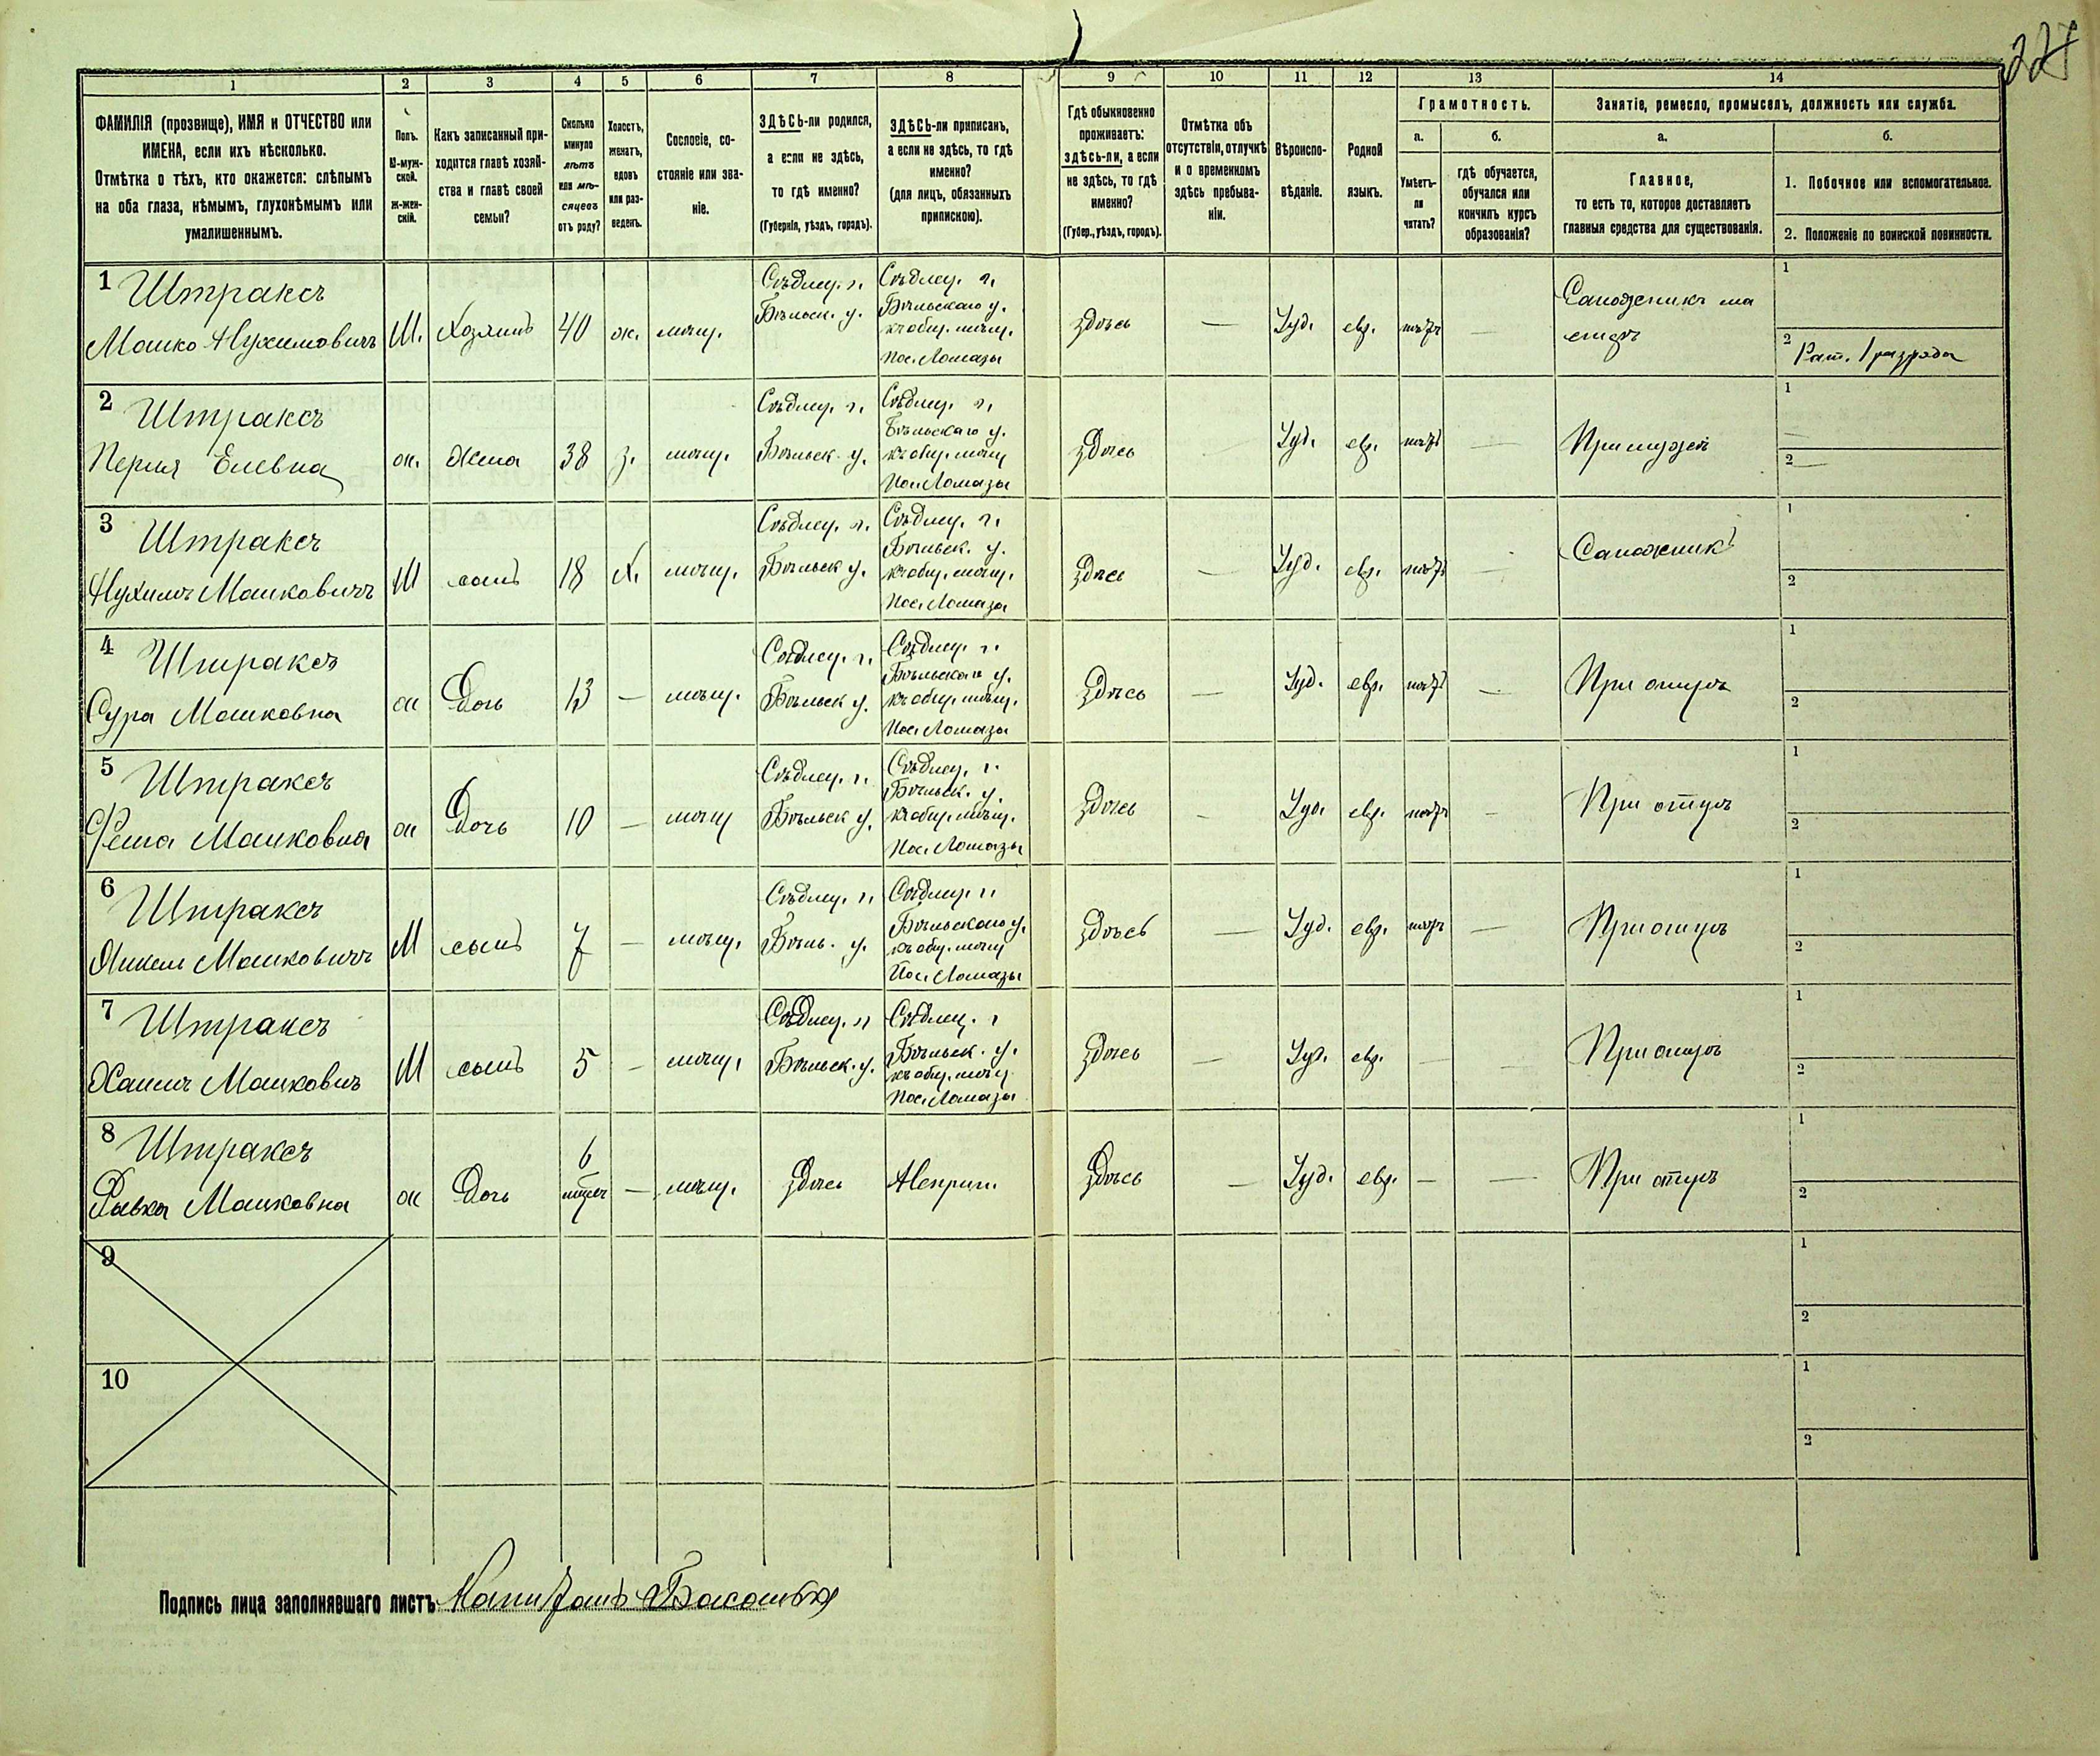 227
1
2
3
4
5
6
7
8
9
10
11
12
13
14
ФАМИЛІЯ (прозвище), ИМЯ и ОТЧЕСТВО или
ИМЕНА, если ихъ нѣсколько.
Отмѣтка о тѣхъ, кто окажется: слѣпымъ
на оба глаза, нѣмымъ, глухонѣмымъ или
умалишеннымъ.
Полъ.
М-муж-
ской.
Ж-жен-
скій.
Какъ записанный при-
ходится главѣ хозяй-
ства и главѣ своей
семьи?
Сколько
минуло
лѣтъ
или мѣ-
сяцевъ
отъ роду?
Холостъ,
женатъ,
вдовъ
или раз-
веденъ.
Сословіе, со-
стояніе или зва-
ніе.
ЗДѢСЬ-ли родился,
а если не здѣсь,
то гдѣ именно?
(Губернія, уѣздъ, городъ).
ЗДѢСЬ-ли приписанъ,
а если не здѣсь, то гдѣ
именно?
(для лицъ, обязанныхъ
припискою).
Гдѣ обыкновенно
проживаетъ:
здѣсь-ли, а если
не здѣсь, то гдѣ
именно?
(Губер., уѣздъ, городъ).
Отмѣтка объ
отсутствіи, отлучкѣ
и о временномъ
здѣсь пребыва-
ніи.
Вѣроиспо-
вѣданіе.
Родной
языкъ.
Грамотность.
а.
б.
Умѣетъ-
ли
читать?
гдѣ обучается,
обучался или
кончилъ курсъ
образованія?
Занятіе, ремесло, промыселъ, должность или служба.
а.
б.
Главное,
то есть то, которое доставляетъ
главныя средства для существованія.
1. Побочное или вспомогательное.
2. Положеніе по воинской повинности.
1 Штраксъ
Мошко Нухимовичъ М. Хозяинъ 40 ж. мѣщ.
Сѣдлец. г.
Бѣльск. у.
Сѣдлец. г.
Бѣльскаго у.
къ общ. мѣщ.
Пос. Ломазы
здѣсь — Іуд. евр. нѣтъ —
Сапожникъ ма
стеръ
1
2 Рат. 1 разряда
2 Штраксъ
Перля Елевна ж. Жена 38 з. мѣщ.
Сѣдлец. г.
Бѣльск. у.
Сѣдлец. г.
Бѣльскаго у.
къ общ. мѣщ
Пос. Ломазы
здѣсь Іуд. евр. нѣтъ — При мужѣ
1
2 —
3 Штраксъ
Нухимъ Мошковичъ М сынъ 18 х. мѣщ.
Сѣдлец. г.
Бѣльск у.
Сѣдлец. г.
Бѣльск. у.
къ общ. мѣщ.
Пос. Ломазы
здѣсь — Іуд. евр. нѣтъ — Сапожникъ
1
2
4 Штраксъ
Сура Мошковна ж Дочь 13 — мѣщ.
Сѣдлец. г.
Бѣльск у.
Сѣдлец. г.
Бѣльскаго у.
къ общ. мѣщ.
Пос. Ломазы
здѣсь — Іуд. евр. нѣтъ — При отцѣ
1
2
5 Штраксъ
Мошковна ж Дочь 10 — мѣщ
Сѣдлец. г.
Бѣльск у.
Сѣдлец. г.
Бѣльск. у.
къ общ. мѣщ.
Пос. Ломазы
здѣсь — Іуд. евр. нѣтъ — При отцѣ
1
2
6 Штраксъ
Янкель Мошковичъ М сынъ 7 — мѣщ.
Сѣдлец. г.
Бѣль. у.
Сѣдлец. г.
Бѣльскаго у.
къ общ. мѣщ
Пос. Ломазы
здѣсь — Іуд. евр. нѣтъ — При отцѣ
1
2
7 Штраксъ
Хаимъ Мошковичъ М сынъ 5 — мѣщ.
Сѣдлец. г.
Бѣльск. у.
Сѣдлец. г
Бѣльск. у.
къ общ. мѣщ
Пос. Ломазы
здѣсь — Іуд. евр. — — При отцѣ
1
2
8 Штраксъ
Ривка Мошковна ж Дочь 6
— мѣщ. здѣсь Неприп. здѣсь — Іуд. евр. — — При отцѣ
1
2
9
1
2
10
1
2
Подпись лица заполнявшаго листъ